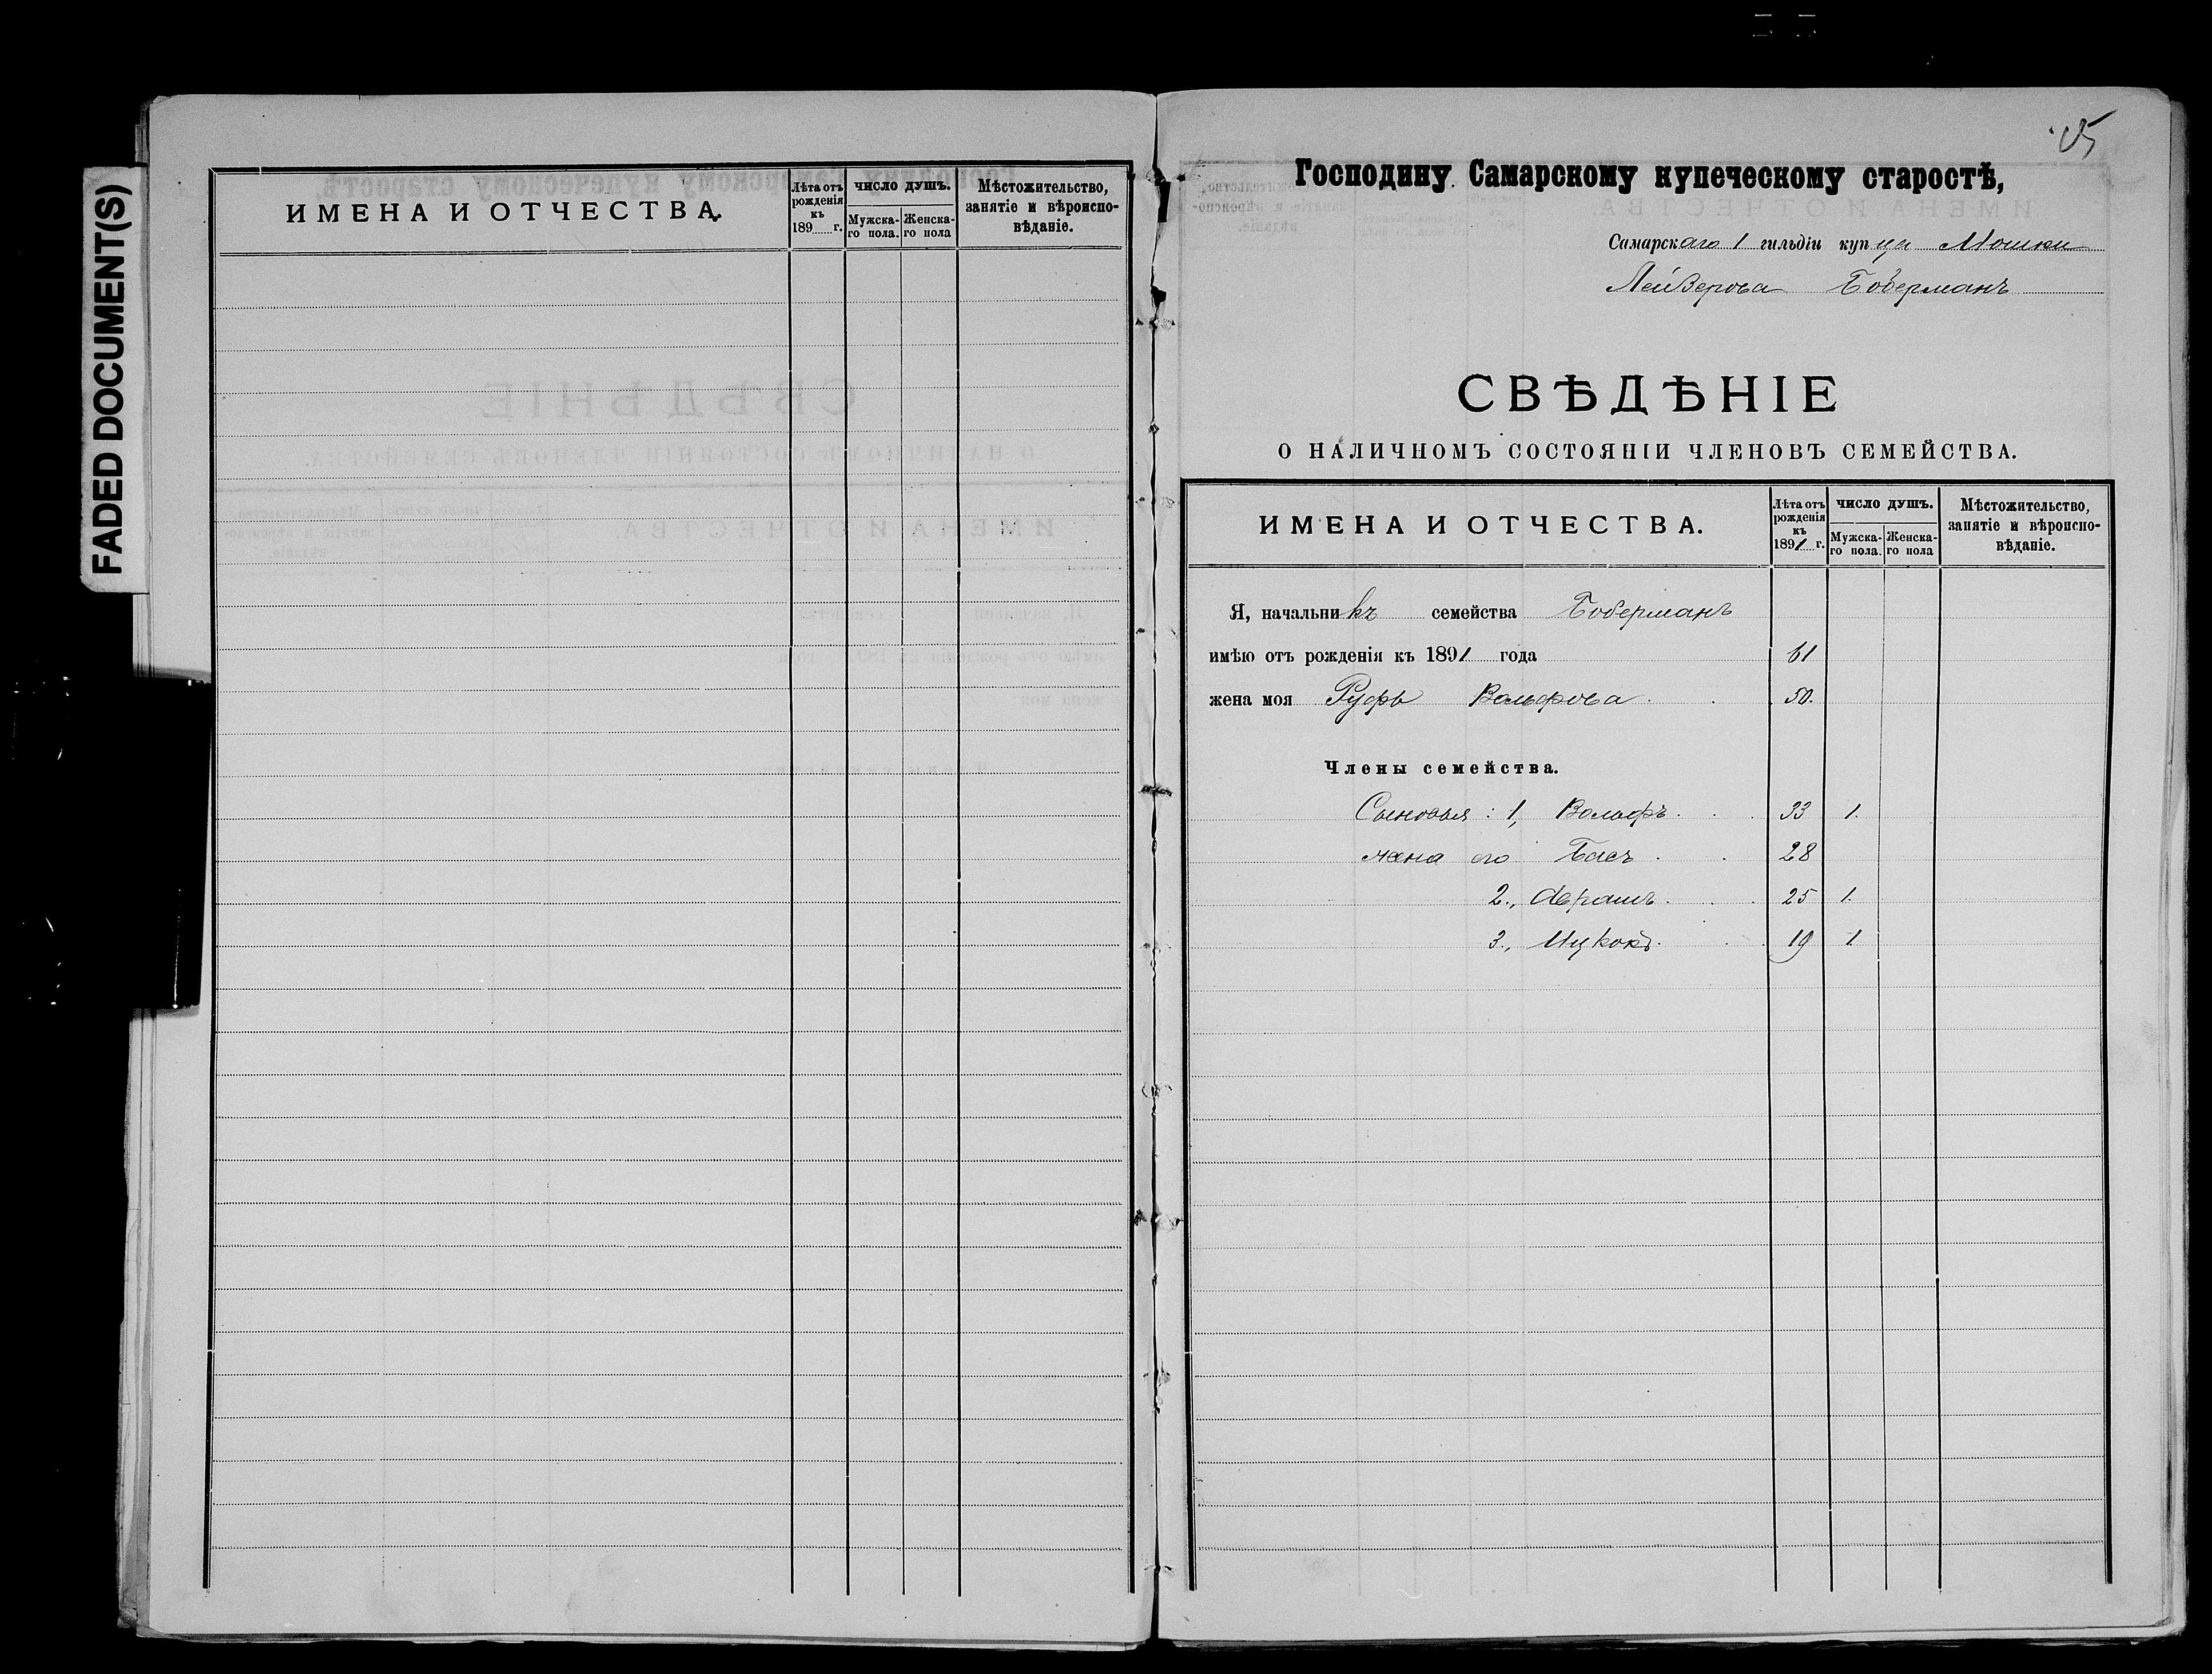 FADED DOCUMENT(S)
ИМЕНА И ОТЧЕСТВА.
Лѣта отъ рожденія къ 189 г.
ЧИСЛО ДУШЪ.
Мужска-го пола.
Женска-го пола
Мѣстожительство, занятіе и вѣроиспо-вѣданіе.
Господину Самарскому купеческому старостѣ,
Самарскаго 1 гильдіи купца Мошки
Лейзерова Боберманъ
СВѢДѢНІЕ
О НАЛИЧНОМЪ СОСТОЯНІИ ЧЛЕНОВЪ СЕМЕЙСТВА.
ИМЕНА И ОТЧЕСТВА.
Лѣта отъ рожденія къ 1891 г.
ЧИСЛО ДУШЪ.
Мужска-го пола.
Женска-го пола
Мѣстожительство, занятіе и вѣроиспо-вѣданіе.
Я, начальникъ семейства Боберманъ
имѣю отъ рожденія къ 1891 года 61
жена моя Руфь Вольфова 50.
Члены семейства.
Сыновья: 1, Вольфъ 33 1.
жена его Басъ 28
2., Абрамъ 25 1.
3., Ицкокъ 19 1